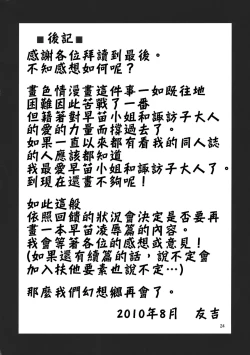 ■後記■
感謝各位拜讀到最後。
不知感想如何呢？
畫色情漫畫這件事一如既往地
困難因此苦戰了一番
但藉著對早苗小姐和諏訪子大人
的愛的力量而撐過去了。
如果一直以來都有看我的同人誌
的人應該都知道
我最愛早苗小姐和諏訪子大人了。
到現在還畫不夠呢！
如此這般
依照回饋的狀況會決定是否要再
畫一本早苗凌辱篇的內容。
我會等著各位的感想或意見！
(如果還有續篇的話，說不定會
加入扶他要素也說不定…)
那麼我們幻想鄉再會了。
2010年8月 友吉
24